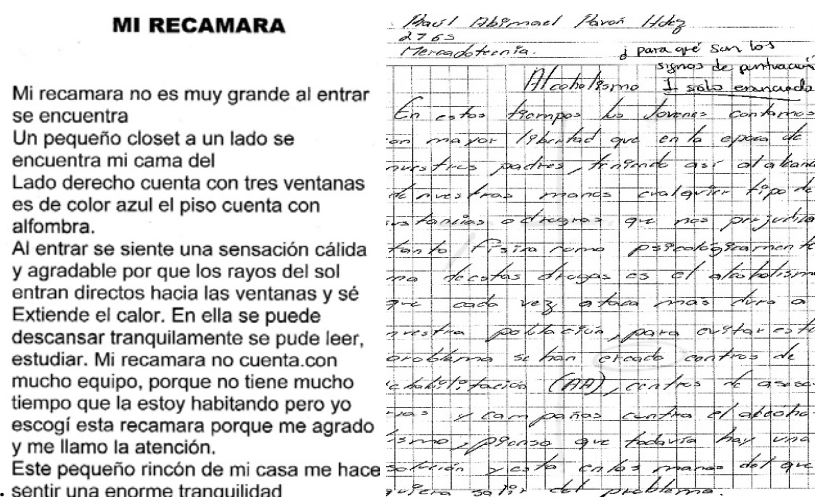 MI RECAMARA
Mi recamara no es muy grande al entrar
se encuentra
Un pequeño closet a un lado se
encuentra mi cama del
Lado derecho cuenta con tres ventanas
es de color azul el piso cuenta con
alfombra.
Al entrar se siente una sensación cálida
y agradable por que los rayos del sol
entran directos hacia las ventanas y sé
Extiende el calor. En ella se puede
descansar tranquilamente se pude leer,
estudiar. Mi recamara no cuenta.con
mucho equipo, porque no tiene mucho
tiempo que la estoy habitando pero yo
escogí esta recamara porque me agrado
y me llamo la atención.
Este pequeño rincón de mi casa me hace
sentir una enorme tranquilidad
Abimael Pavon Hdez
2765
Mercadotecnia.
¿ para qué son los
signos de puntuación
1 sola enunciado
Alcoholismo
En estos tiempos los Jovenes contamos
con mayor libertad que en la epoca de
nuestros padres, teniendo asi al alcance
de nuestras manos cualquier tipo de
sustancias o drogas que nos perjudica
tanto fisica como psicologicamente
una de estas drogas es el alcoholismo
que cada vez ataca mas duro a
nuestra poblacion, para evitar este
problema se han creado centros de
rehabilitación (AA), centros de aseso-
rias y campañas contra el alcoho-
lismo, pienso que todavia hay una
solucion y esta en las manos del que
quiera salir del problema.